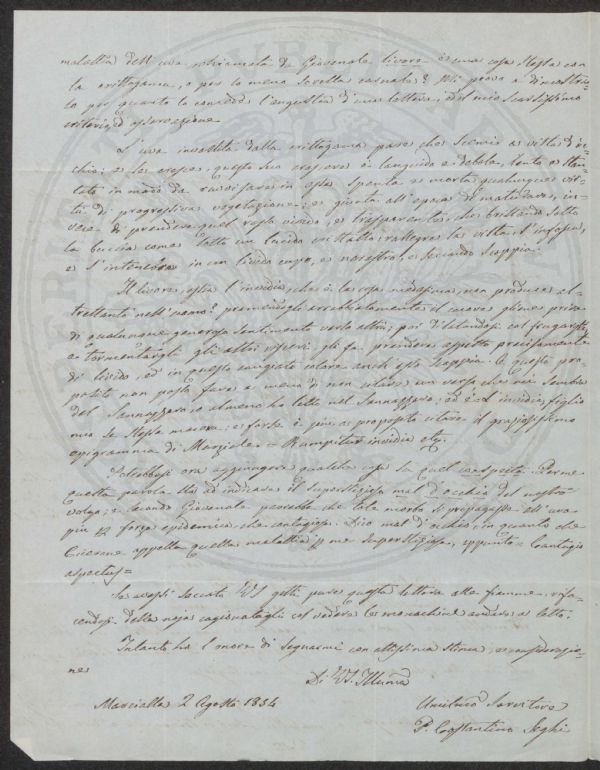 malattia dell'uva chiamata da Giovenale livore è una cosa stessa con
la crittogama, o per lo meno sorella carnale? Mi provo a dimostrar-
lo per quanto lo concede l'angustia d'una lettera, e del mio scarsissimo
criterio, ed osservazione.
L'uva investita dalla crittogama pare che scemi a vista d'oc-
chio; e se cresce, questo suo crescere è languido e debole, tanto
in modo da ravvisare in essa spenta e morta qualunque vir-
tù di progressiva vegetazione; e giunta all'epoca di maturare, in-
vece di prendere quel rosso vivido, e trasparente, che brillando sotto
la buccia come sotto un lucido cristallo rallegra la vista, s'infosca,
e s'intenebra in un livido cupo, e nerastro, e seccando scoppia.
Il livore, ossia l'invidia, che è la cosa medesima, non produce al-
trettanto nell'uomo? premendogli arrabbiatamente il cuore gliene priva
di qualunque generoso sentimento verso altrui; poi dilatandosi col
a tormentargli gli altri visceri, gli fa prendere aspetto precisamente
di livido, ed in questo cangiato colore anch'esso scoppia. A questo pro-
posito non posso fare a meno di non citare un verso che mi sembra
del Sannazzaro o almeno ho letto nel Sannazzaro; ed è = L'invidia, figlio
mio se stessa macera; e forse è più a proposito citare il graziosissimo
epigramma di Marziale = Rumpitur invidia etc.
Potrebbesi ora aggiungere qualche cosa su quel conspecta. Per me
questa parola sta ad indicare il superstizioso mal d'occhio del nostro
volgo; e secondo Giovenale parrebbe che tale morbo si propagasse all'uva
più per forza epidemica che contagiosa. Dico mal d'occhio, in quanto che
Cicerone appella quella malattia per me superstiziosa, appunto = Contagio
aspectus =
Se avessi seccato VS. getti pure questa lettera alle fiamme, rifa-
cendosi della noja cagionatagli col vedere le monachine andare a letto.
Intanto ho l'onore di segnarmi con altissima stima, e considerazio-
ne
Di VS. Illuma
Marcialla 2 Agosto 1854
Umilmo Servitore
P. Costantino Seghi